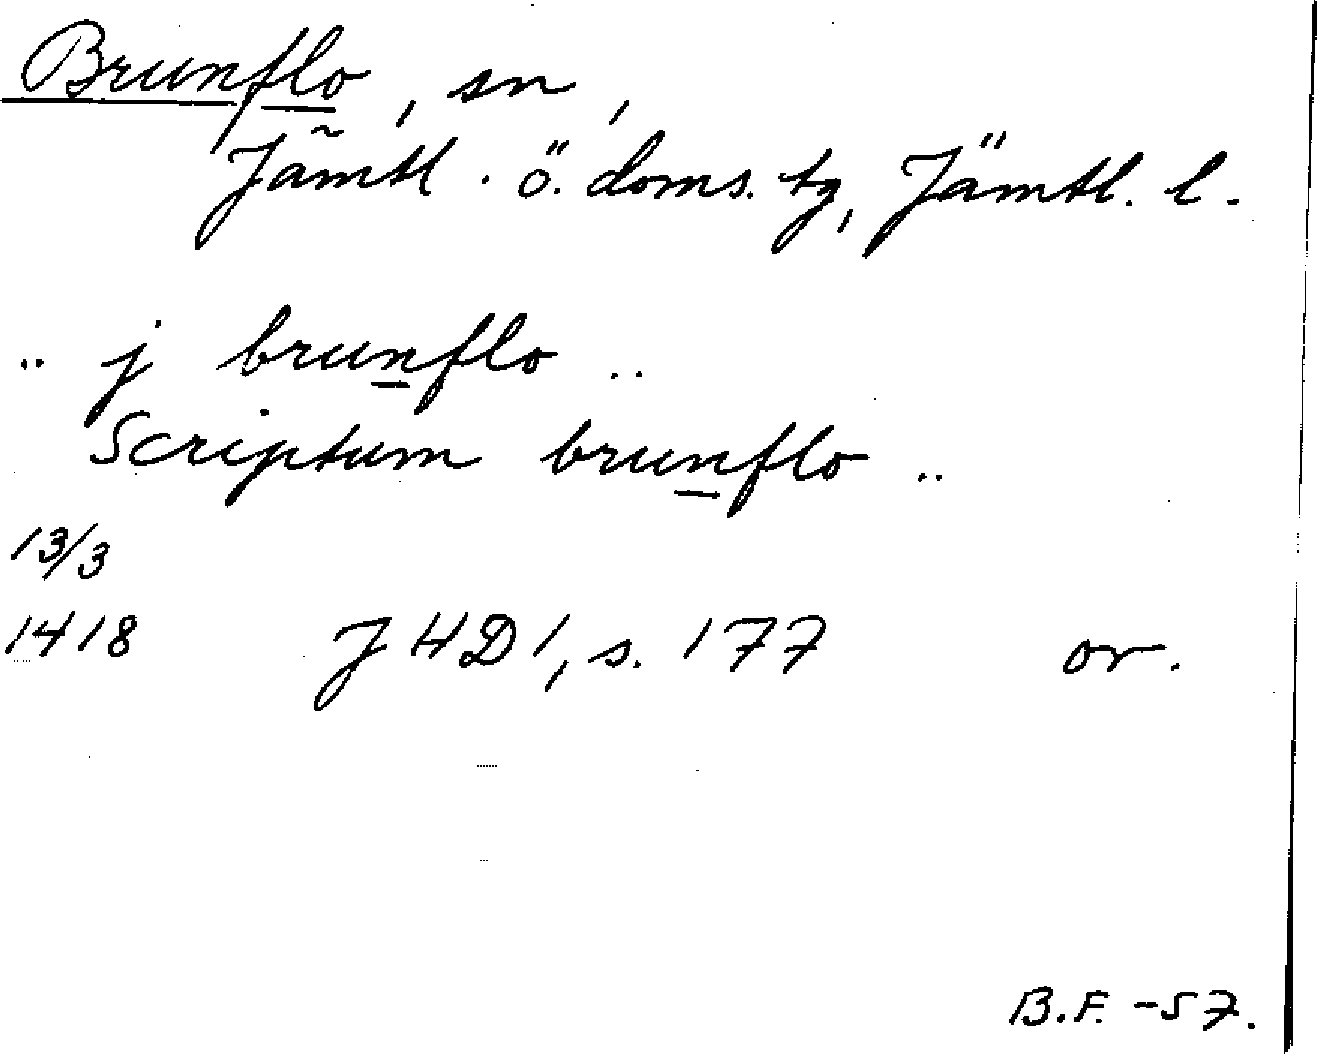 Brunflo, sn,
Jämtl. ö. doms. tg, Jämtl. l.
.. j brunflo ..
Scriptum brunflo ..
13/3
1418 J H D 1, s. 177 or.
B.F. -57.